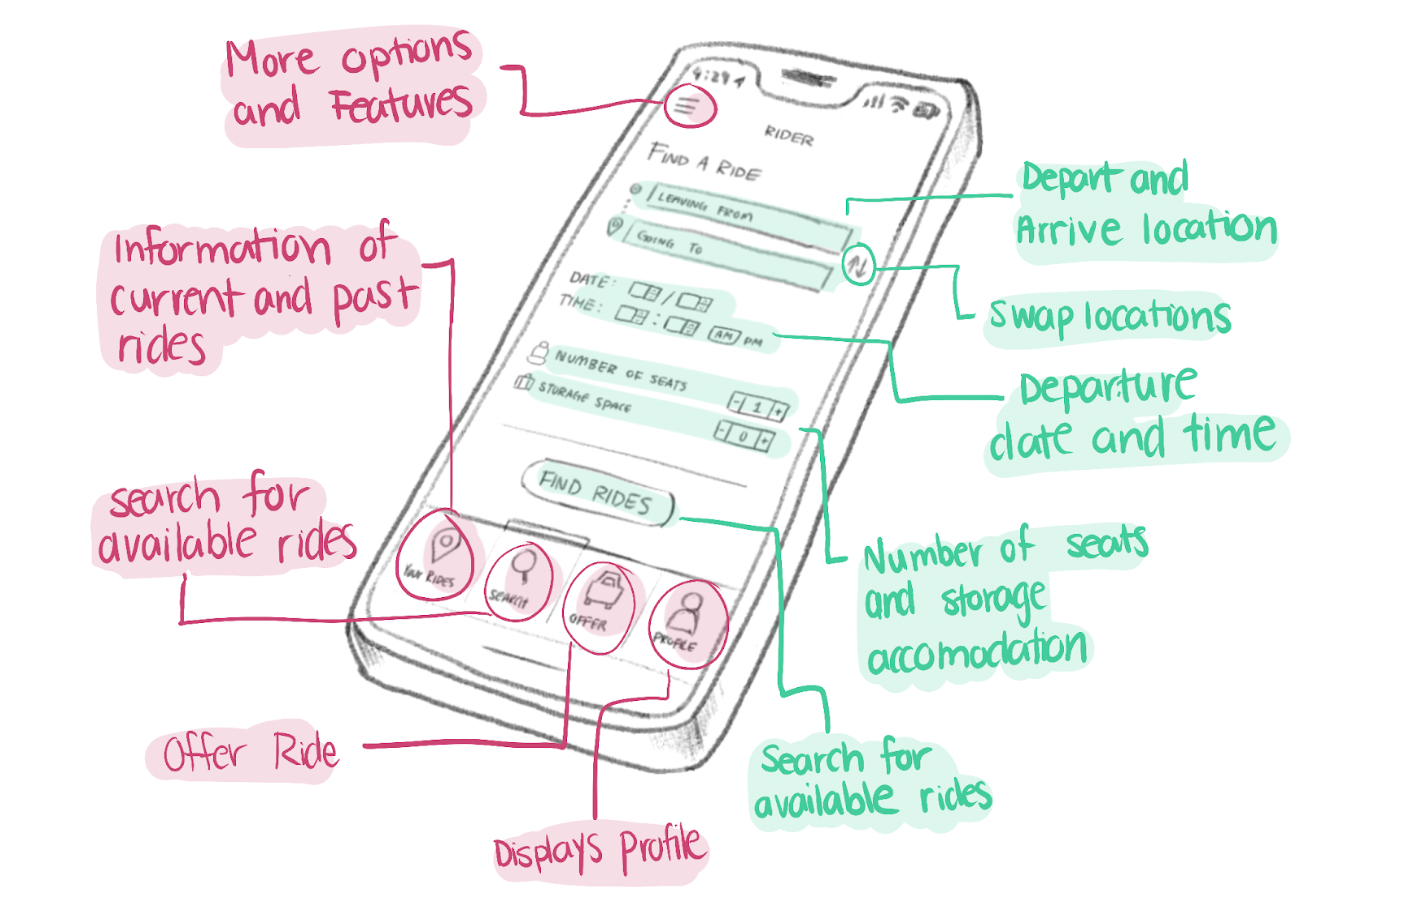 More options
and Features
Information of
current and past
rides
search for
available rides
Offer Ride
Displays Profile
4:29
RIDER
FIND A RIDE
LEAVING FROM
GOING TO
DATE: /
TIME: : AM PM
NUMBER OF SEATS - 1 +
STORAGE SPACE - 0 +
FIND RIDES
YOUR RIDES
SEARCH
OFFER
PROFILE
Depart and
Arrive location
Swap locations
Departure
date and time
Number of seats
and storage
accomodation
Search for
available rides